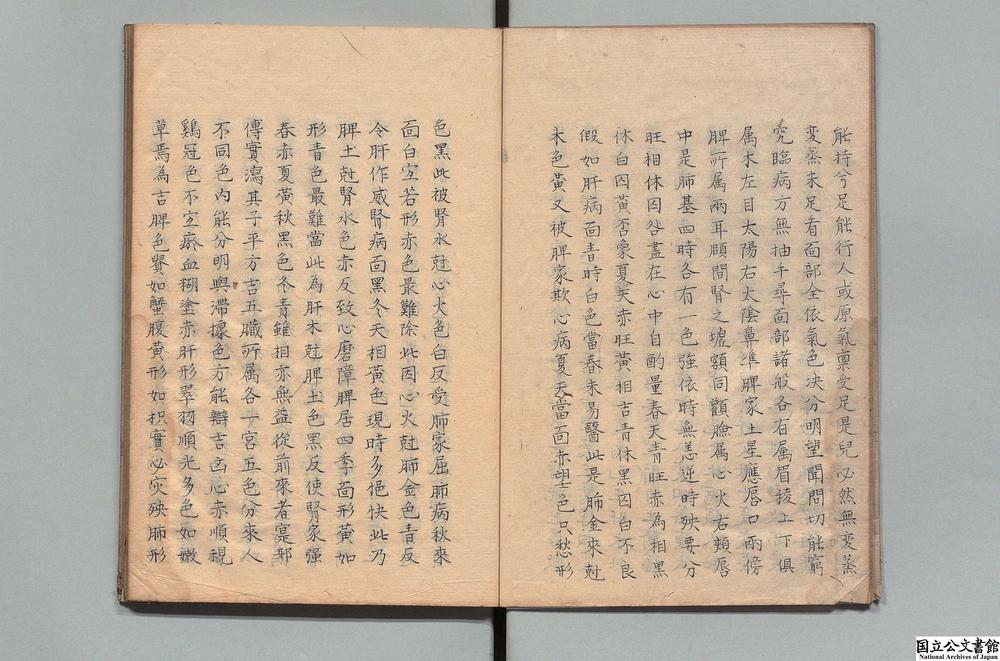 能持兮足能行人或原氣稟受足是兒必然無变蒸
変蒸未足看面部全依氣色決分明望聞問切能窮
究臨病方無抽千尋面部諸般各有属眉接上下俱
属木左目太陽右太陰鼻準脾家土星應唇口兩傍
脾所属兩耳頥間腎之墟額同顴臉属心火右頰唇
中是肺基四時各有一色強依時無恙逆時殃要分
旺相休囚咎盡在心中自酌量春天青旺赤為相黑
休白囚黄否象夏天赤旺黄相吉青休黑囚白不良
假如肝病面青時白色當春未易醫此是肺金來尅
木色黄又被脾家欺心病夏天當面赤望色只愁形
色黑此被腎水尅心火色白反受肺家屈肺病秋來
面白宜若形赤色最難除此因心火尅肺金色青反
令肝作威腎病面黑冬天相黄色現時多悒怏此乃
脾土尅腎水色赤反致心磨障脾居四季面形黄如
形青色最難當此為肝木尅脾土色黑反使腎家強
春赤夏黄秋黑色冬青雖相亦無益從前來者寔邪
傳實瀉其子平方吉五臟所属各一宮五色分來人
不同色内能分明與滯據色方能辯吉凶心赤順親
鷄冠色不宜瘀血糊塗赤肝形翠羽順光多色如嫩
草焉為吉脾色賢如蟹腹黄形如枳實必灾殃肺形
国立公文書館
National Archives of Japan